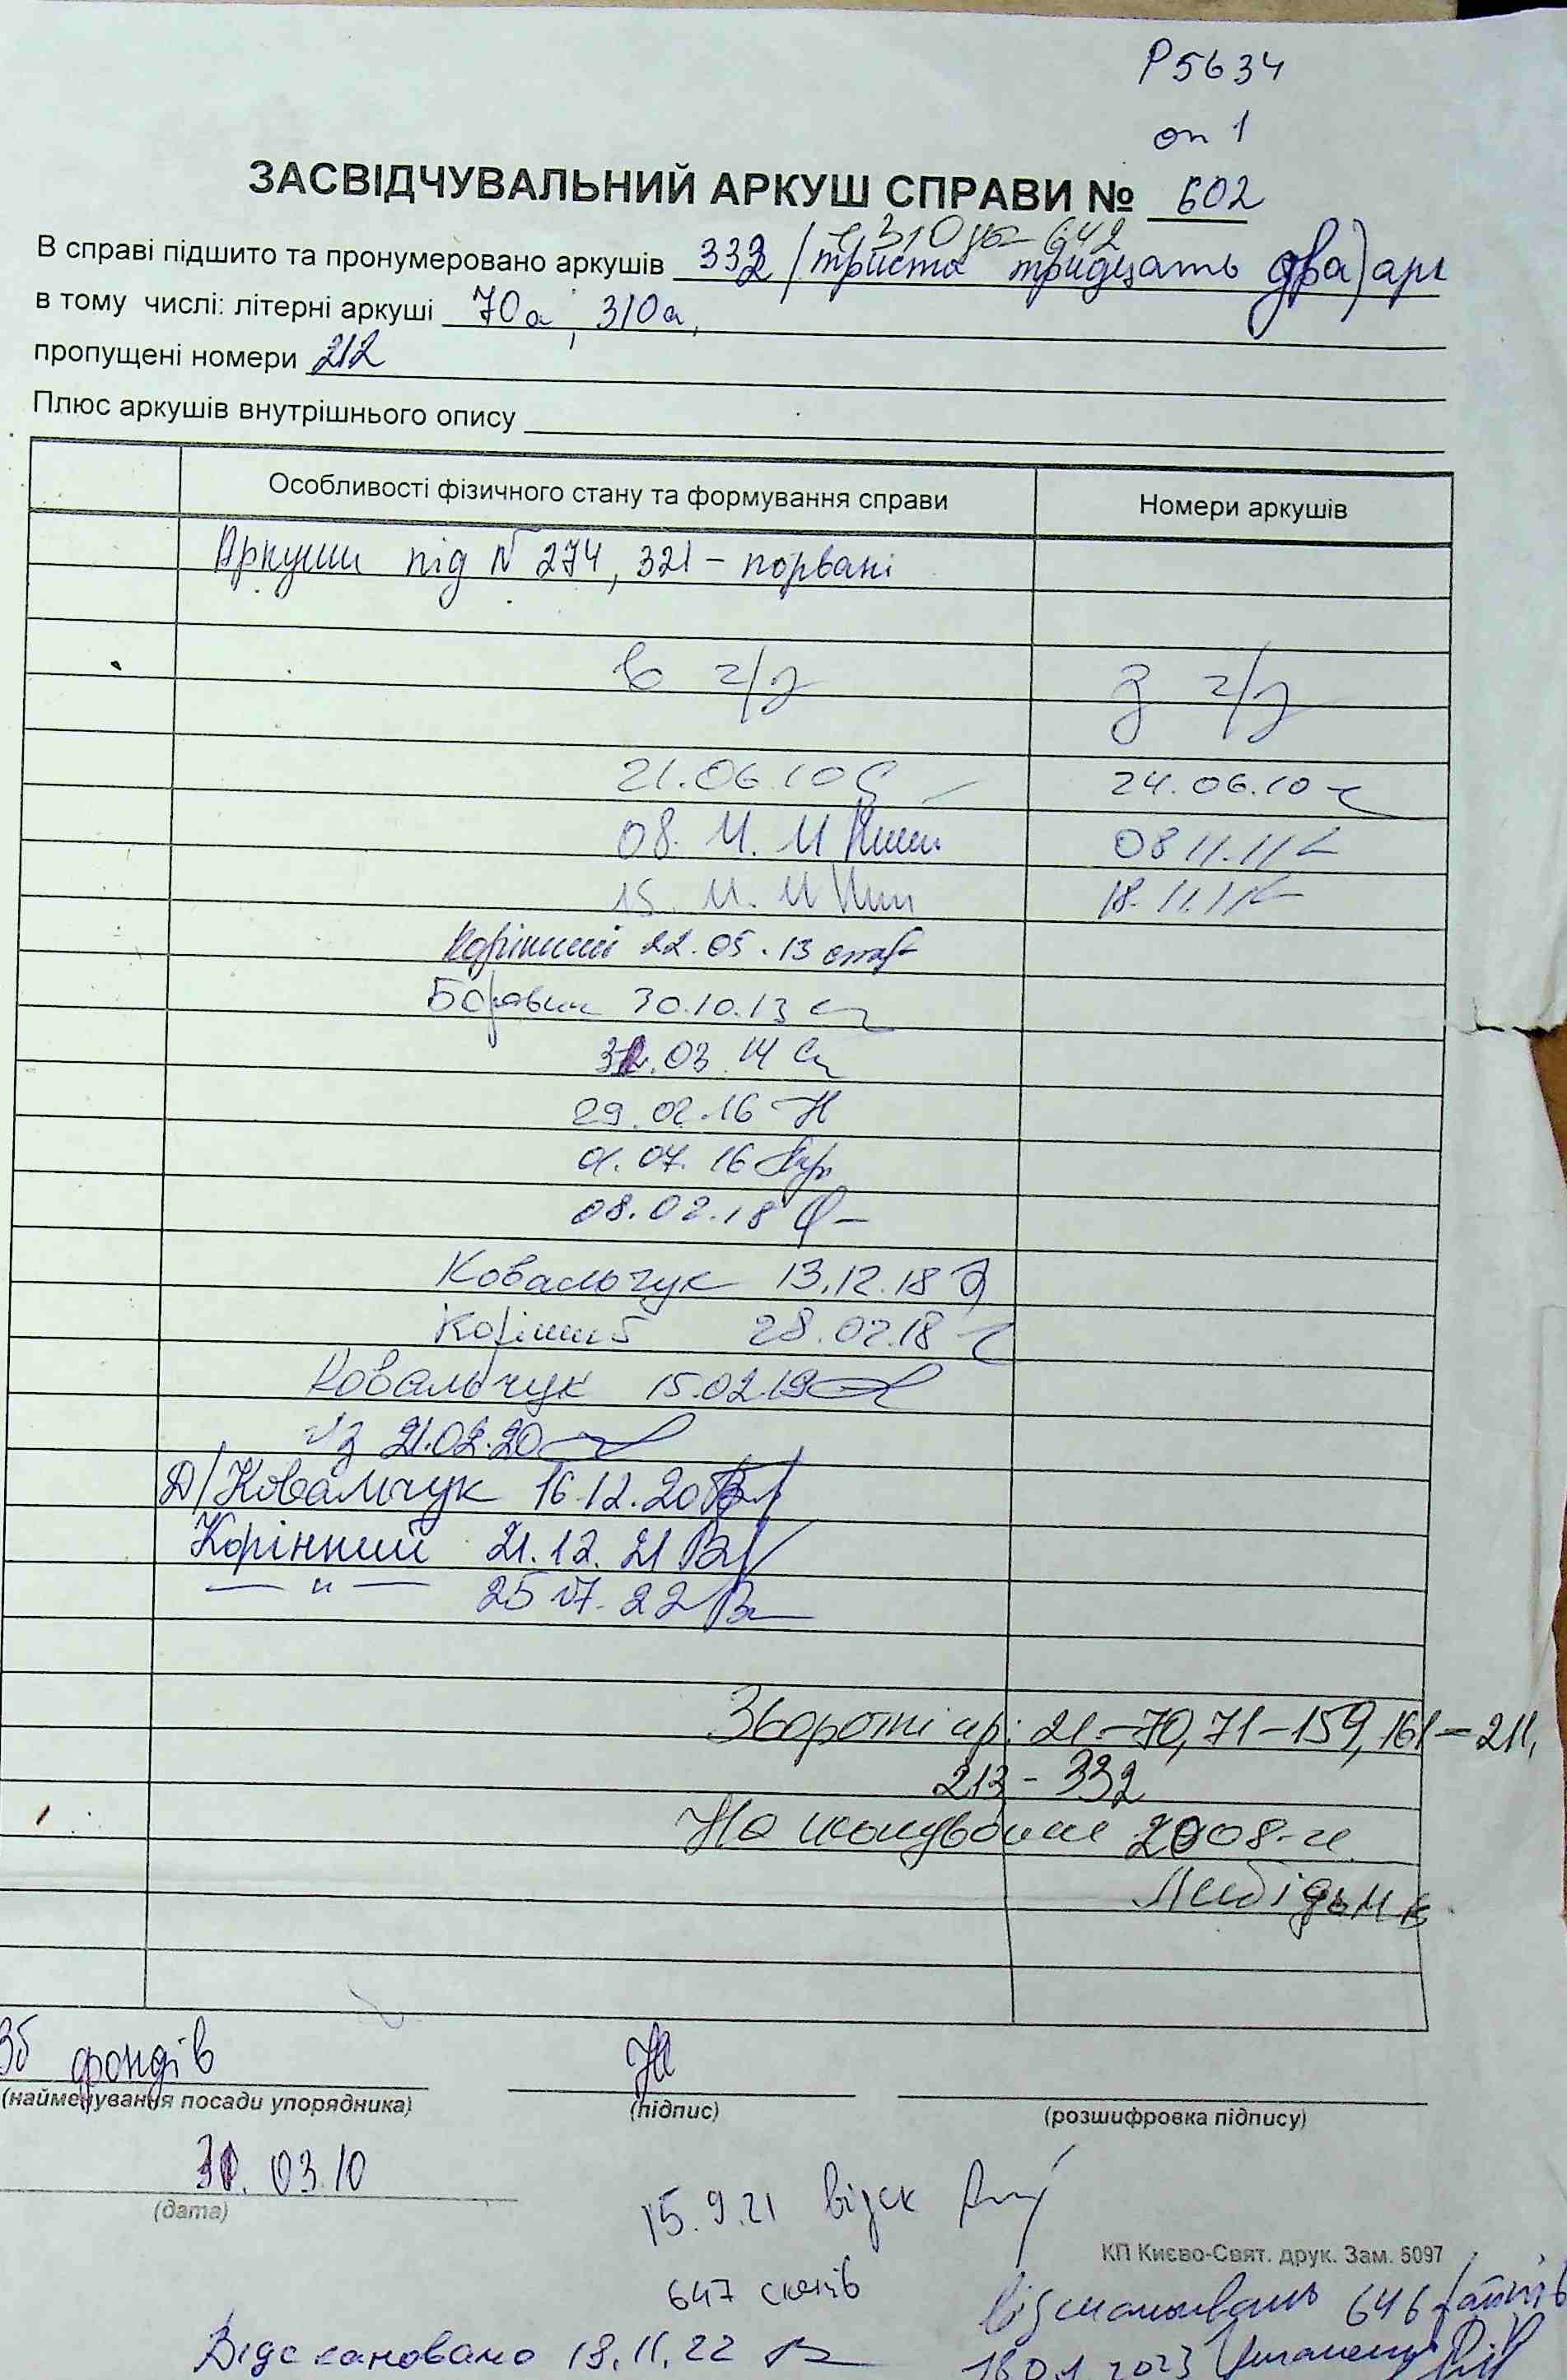 Р5634
оп 1
ЗАСВІДЧУВАЛЬНИЙ АРКУШ СПРАВИ № 602
В справі підшито та пронумеровано аркушів 332 (триста тридцять два) арк
в тому числі: літерні аркуші 70а, 310а,
пропущені номери 212
Плюс аркушів внутрішнього опису
Особливості фізичного стану та формування справи Номери аркушів
Аркуші під № 274, 321 – порвані
в ч/з з ч/з
21.06.10 24.06.10
08.11.11 08 11.11
15.11.11 18.11.11
Корінний 22.05.13
30.10.13
03.14
29.02.16
01.07.16
08.02.18
Ковальчук 13.12.18
Корінний 28.02.18
Ковальчук 15.02.19
ч/з 21.02.20
Д/Ковальчук 16.12.20
Корінний 21.12.21
— " — 25.07.22
Зворотні ар: 21–70, 71–159, 161–211,
213–332
2008
зб фондів
(найменування посади упорядника) (підпис) (розшифровка підпису)
03.10
(дата)
15.9.21 відск
КП Києво-Свят. друк. Зам. 5097
647 сканів
Відскановано 18.11.22
18.01.2023